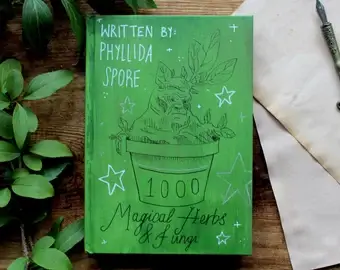 WRITTEN BY:
PHYLLIDA
SPORE
1000
Magical Herbs
& Fungi